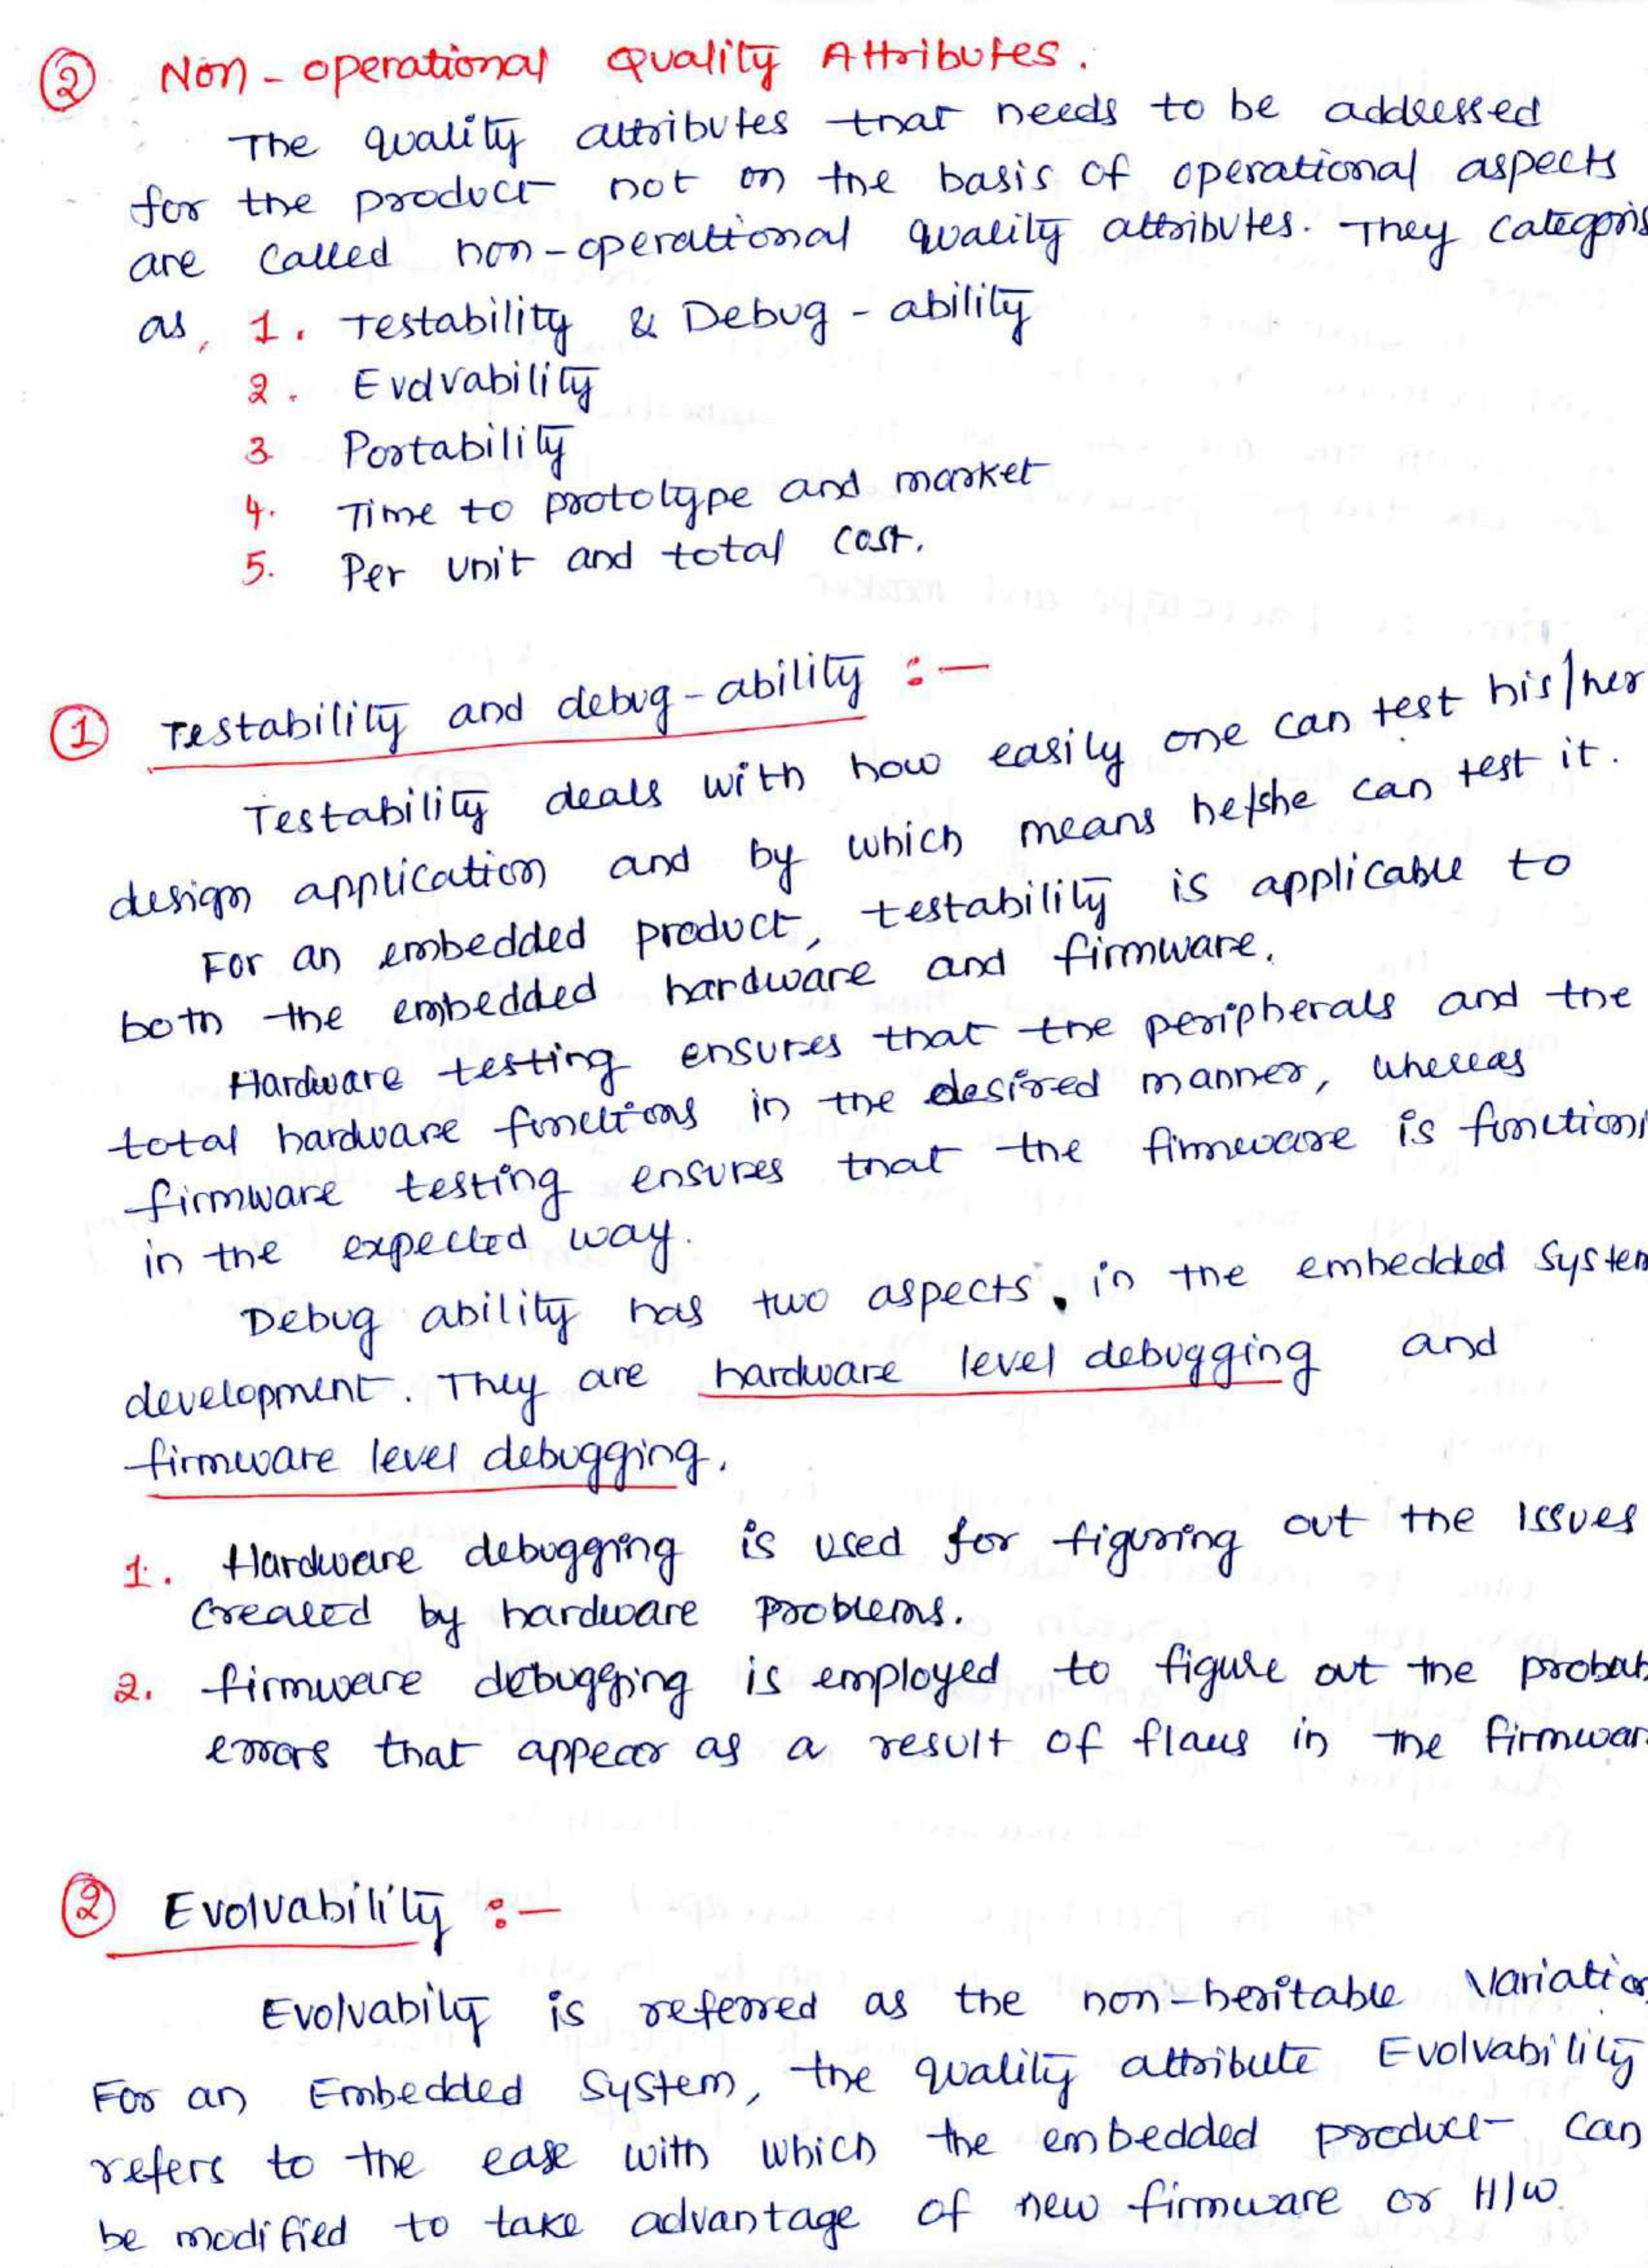 ② Non-operational Quality Attributes.
The quality attributes that needs to be addressed
for the product not on the basis of operational aspects
are called non-operational quality attributes. They categoris
as, 1. Testability & Debug-ability
2. Evolvability
3 Portability
4. Time to prototype and market
5. Per unit and total cost.
① Testability and debug-ability :-
Testability deals with how easily one can test his/her
design application and by which means he/she can test it.
For an embedded product, testability is applicable to
both the embedded hardware and firmware.
Hardware testing ensures that the peripherals and the
total hardware functions in the desired manner, whereas
firmware testing ensures that the firmware is functioni
in the expected way.
Debug ability has two aspects, in the embedded system
development. They are hardware level debugging and
firmware level debugging.
1. Hardware debugging is used for figuring out the issues
created by hardware problems.
2. firmware debugging is employed to figure out the probab
errors that appear as a result of flaws in the firmwar
② Evolvability :-
Evolvabily is referred as the non-heritable variatio
For an Embedded System, the quality attribute Evolvability
refers to the ease with which the embedded product can
be modified to take advantage of new firmware or H/W.